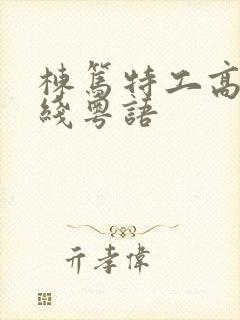 棟篤特工高
綫粵語
亓孝偉